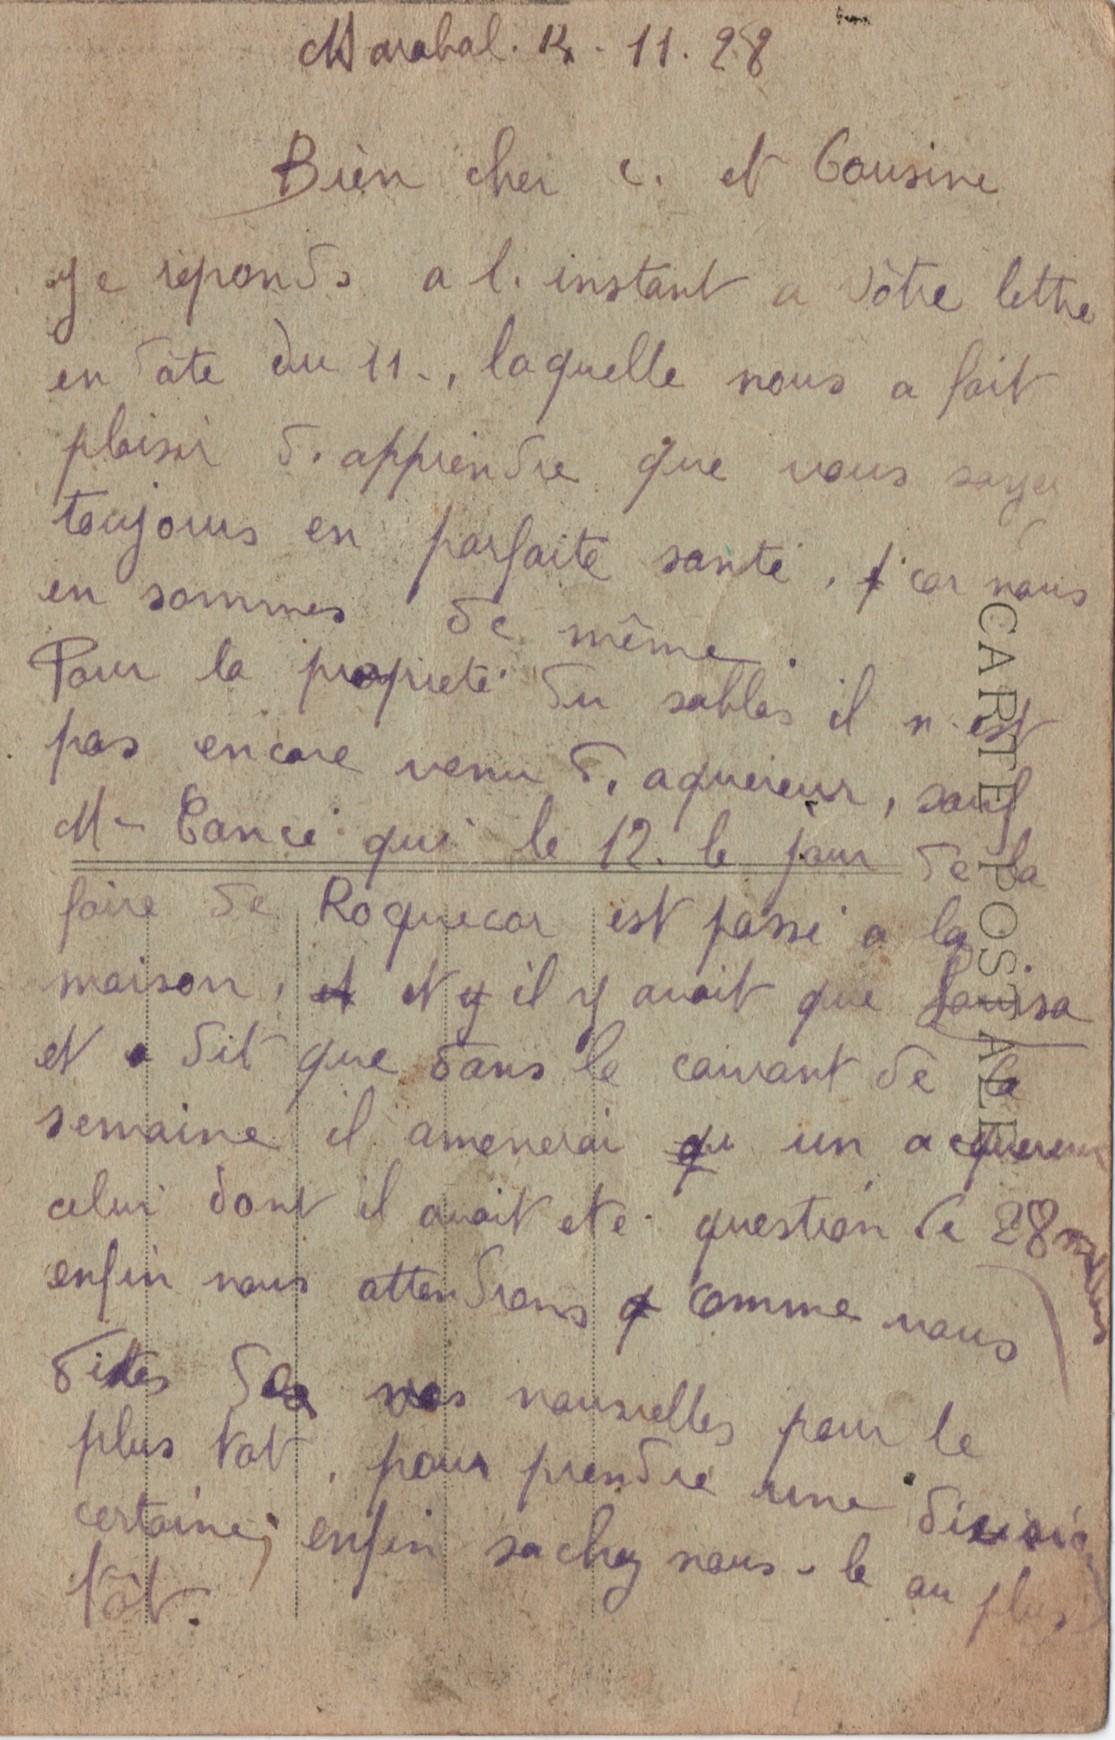 Marabal. 14. 11. 28
Bien cher c. et Cousine
Je reponds a l. instant a vôtre lettre
en date du 11., laquelle nous a fait
plaisir d. apprendre que vous soyez
toujours en parfaite santé, car nous
en sommes de même.
Pour la propriete du sables il n. est
pas encore venu d. aquereur, sauf
Mr Cancé qui le 12. le jour de la
foire de Roquecor est passé a la
maison, et il y avait que Louisa
et a dit que dans le courant de la
semaine il amenerai un acquereur
celui dont il avait eté question de 28 milles
enfin nous attendrons comme vous
dites de vos nouvelles pour le
plus tot, pour prendre une decision
certaine; enfin sachez nous-le au plus
tôt.
CARTE POSTALE